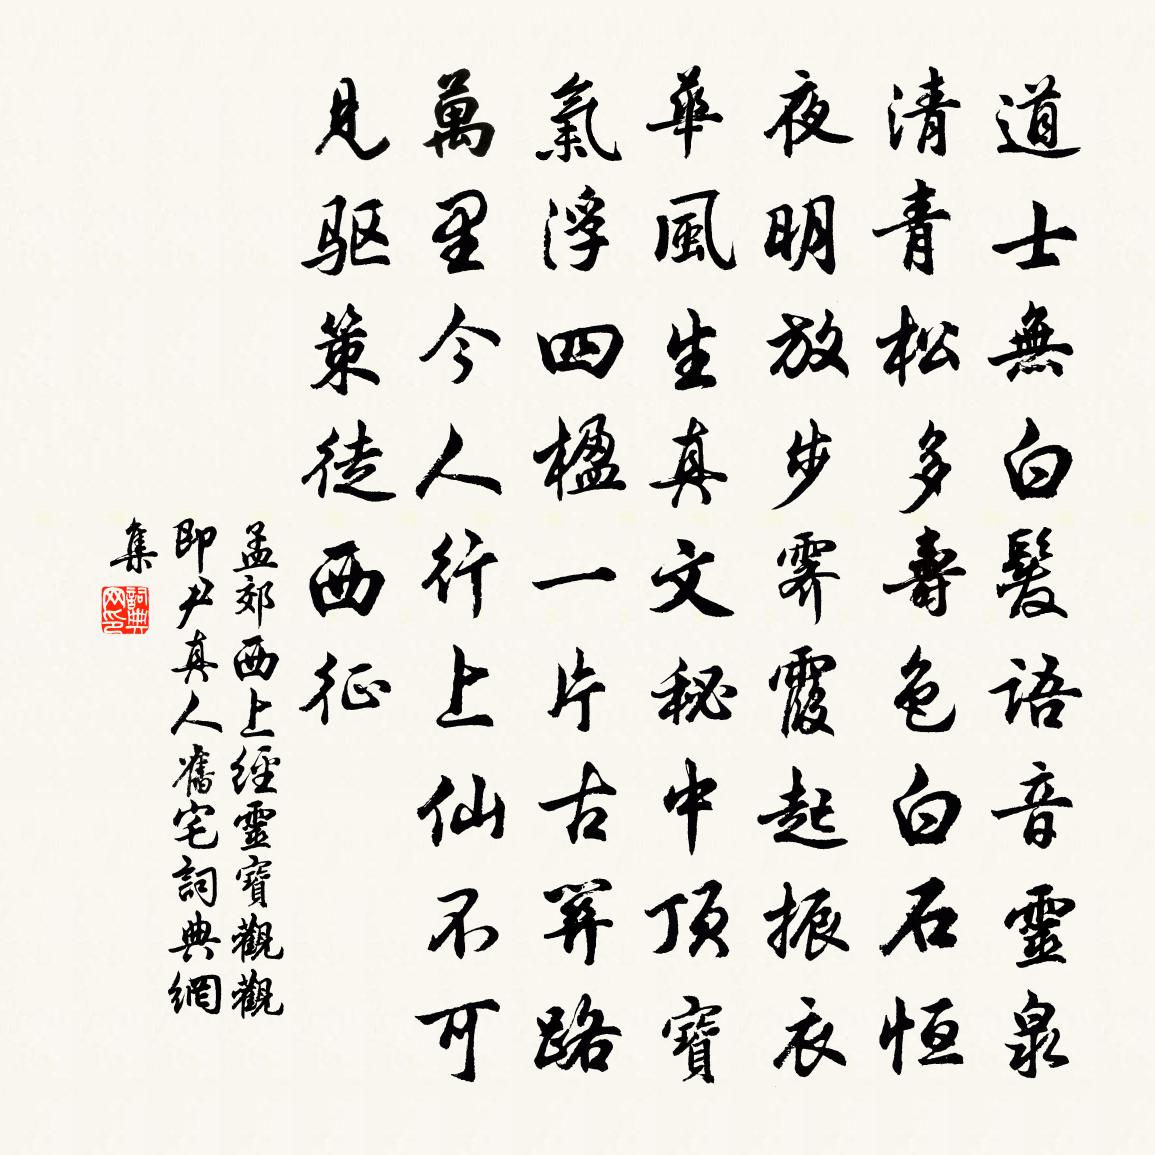 道士無白髮語音靈泉
清青松多壽色白石恒
夜明放步霽霞起振衣
華風生真文秘中頂寶
氣浮四楹一片古關路
萬里今人行上仙不可
見驱策徒西征
孟郊西上經靈寶觀觀
即尹真人舊宅詞典網
集
詞典网印